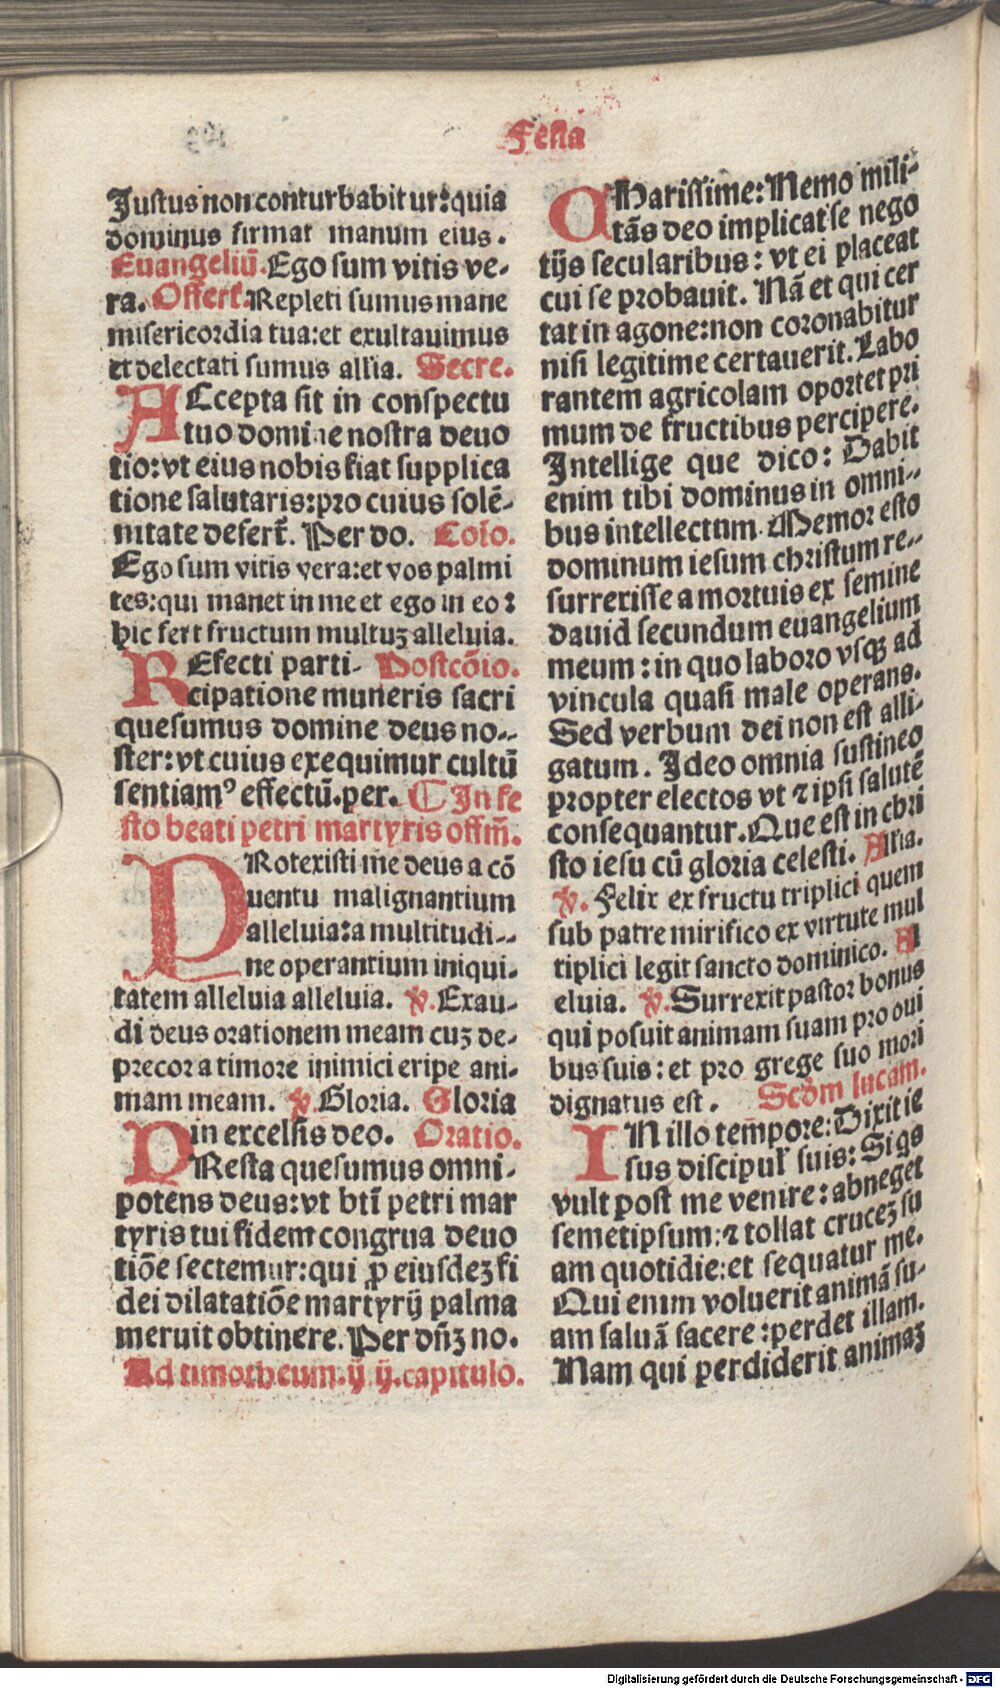 Festa
Justus non conturbabitur: quia
dominus firmat manum eius.
Euangeliū. Ego sum vitis ve-
ra. Offert. Repleti sumus mane
misericordia tua: et exultauimus
et delectati sumus alľia. Secre.
ACcepta sit in conspectu
tuo domine nostra deuo
tio: vt eius nobis fiat supplica
tione salutaris: pro cuius solē-
nitate defert̄. Per do. Cōio.
Ego sum vitis vera: et vos palmi
tes: qui manet in me et ego in eo:
hic fert fructum multuꝫ alleluia.
REfecti parti- Postcōio.
cipatione muneris sacri
quesumus domine deus no-
ster: vt cuius exequimur cultū
sentiamꝰ effectū. per. ¶ In fe
sto beati petri martyris offm̄.
PRotexisti me deus a cō
uentu malignantium
alleluia: a multitudi-
ne operantium iniqui-
tatem alleluia alleluia. ℣. Exau-
di deus orationem meam cuꝫ de-
precor a timore inimici eripe ani-
mam meam. ℣. Gloria. Gloria
in excelsis deo. Oratio.
PResta quesumus omni-
potens deus: vt bt̄i petri mar
tyris tui fidem congrua deuo
tiōe sectemur: qui ꝓ eiusdeꝫ fi
dei dilatatiōe martyrij palma
meruit obtinere. Per dn̄ꝫ no.
Ad timotheum. ij ij. capitulo.
CHarissime: Nemo mili-
tās deo implicat se nego
tijs secularibus: vt ei placeat
cui se probauit. Nā et qui cer
tat in agone: non coronabitur
nisi legitime certauerit. Labo
rantem agricolam oportet pri
mum de fructibus percipere.
Intellige que dico: Dabit
enim tibi dominus in omni-
bus intellectum. Memor esto
dominum iesum christum re-
surrexisse a mortuis ex semine
dauid secundum euangelium
meum: in quo laboro vsqꝫ ad
vincula quasi male operans.
Sed verbum dei non est alli-
gatum. Ideo omnia sustineo
propter electos vt ⁊ ipsi salutē
consequantur. Que est in chri
sto iesu cū gloria celesti. Alľia.
℣. Felix ex fructu triplici quem
sub patre mirifico ex virtute mul
tiplici legit sancto dominico. Al
eluia. ℣. Surrexit pastor bonus
qui posuit animam suam pro oui
bus suis: et pro grege suo mori
dignatus est. Scd̄m lucam.
IN illo tempore: Dixit ie
sus discipuľ suis: Si qs
vult post me venire: abneget
semetipsum: ⁊ tollat cruceꝫ su
am quotidie: et sequatur me.
Qui enim voluerit animā su-
am saluā facere: perdet illam.
Nam qui perdiderit animaꝫ
Digitalisierung gefördert durch die Deutsche Forschungsgemeinschaft - DFG